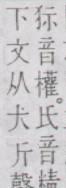 狋音權。氏音精
下文从犬斤聲